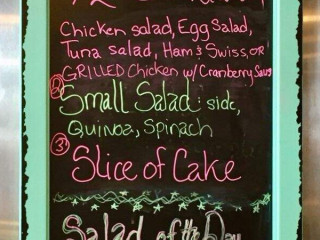 Chicken salad, Egg Salad,
Tuna salad, Ham & Swiss, OR
GRILLED Chicken w/ Cranberry Sauce
② Small Salad: side,
Quinoa, Spinach
③ Slice of Cake
Salad of the Day